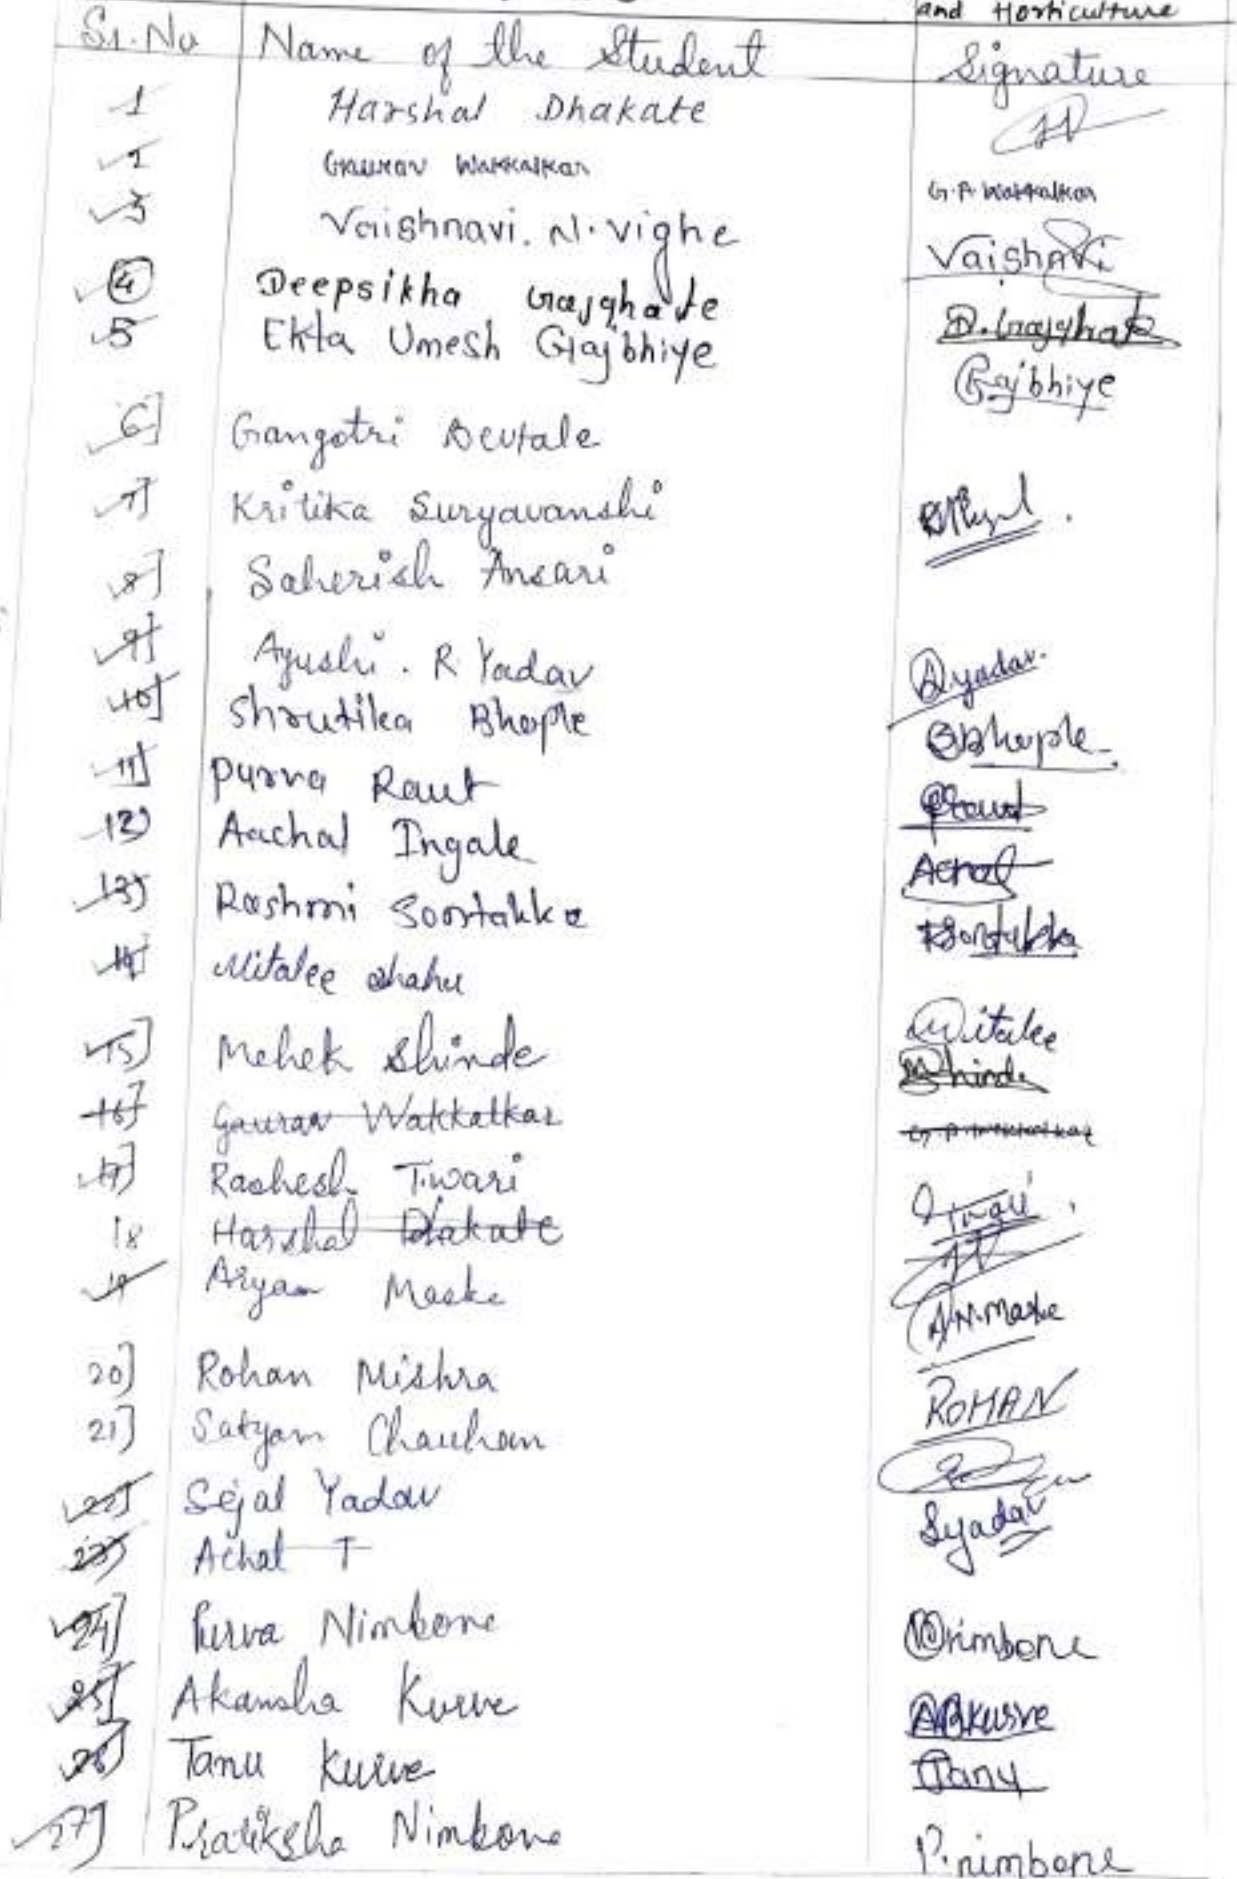 and Horticulture
Sr. No Name of the Student Signature
1 Harshal Dhakate
2 Gaurav Wakkalkar G.A. Wakkalkar
3 Vaishnavi. N. vighe Vaishnavi
4 Deepsikha Gajghate D. Gajghate
5 Ekta Umesh Gajbhiye Gajbhiye
6] Gangotri Deutale
7] Kritika Suryavanshi
8] Saherish Ansari
9] Ayushi . R Yadav Ayadav.
10] Shrutika Bhople SBhople
11] Purva Raut PRaut
12) Aachal Ingale Achal
13) Rashmi Sontakke RSontakke
14] Mitalee Shahu Mitalee
15] Mehek Shinde MShinde
16] Gaurav Wakkalkar G.A. Wakkalkar
17] Rashesh Tiwari Tiwari
18 Harshal Dhakate
19 Aryan Maske A.N. Maske
20] Rohan Mishra ROHAN
21] Satyam Chauhan
22] Sejal Yadav Syadav
23) Achal T
24] Purva Nimbone Nimbone
25] Akansha Kurve ABKurve
26] Tanu Kurve Tanu
27] Pratiksha Nimbone P. nimbone